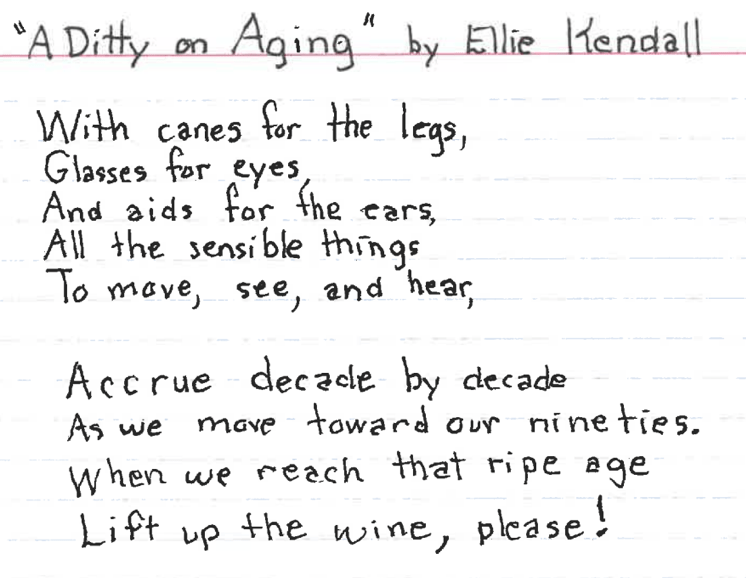 "A Ditty on Aging" by Ellie Kendall
With canes for the legs,
Glasses for eyes,
And aids for the ears,
All the sensible things
To move, see, and hear,
Accrue decade by decade
As we move toward our nineties.
When we reach that ripe age
Lift up the wine, please!